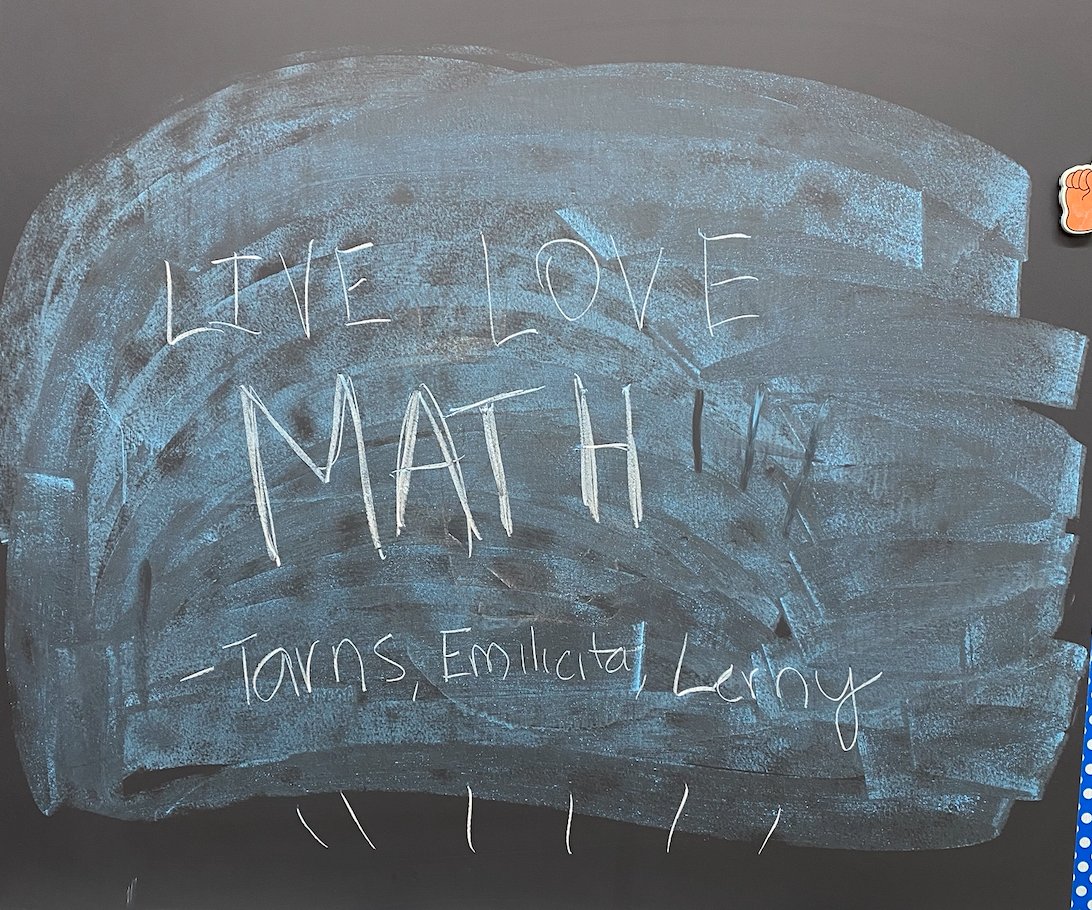 LIVE LOVE
MATH
- Tarns, Emilicita, Lerny